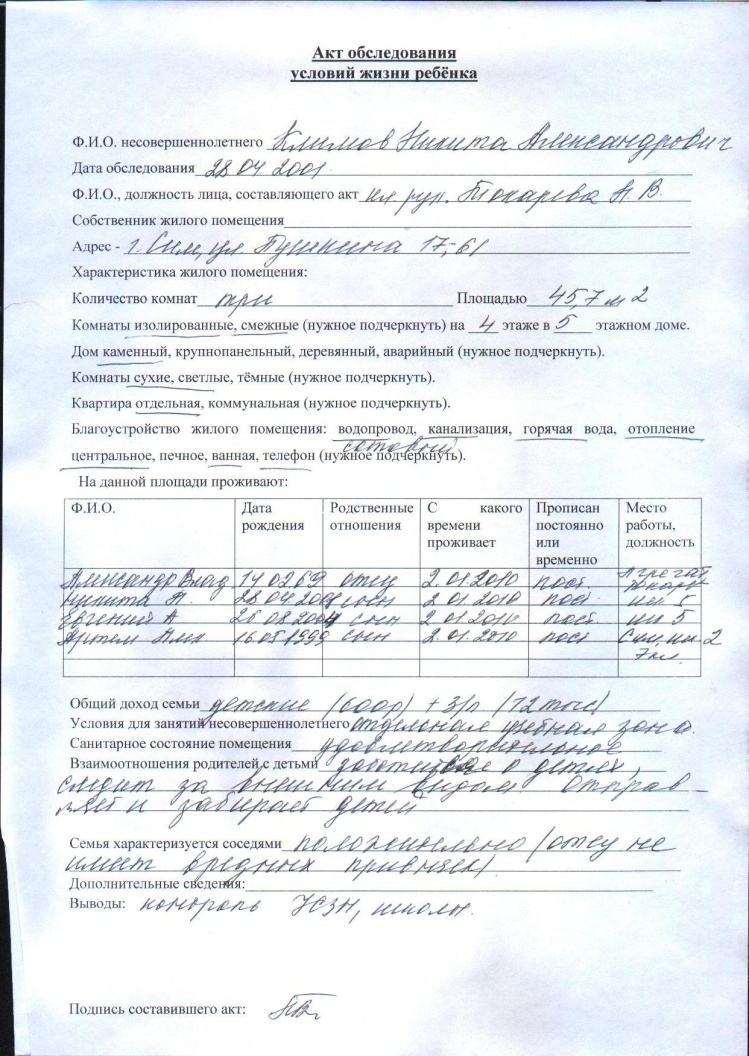 Акт обследования
условий жизни ребёнка
Ф.И.О. несовершеннолетнего Климов Никита Александрович
Дата обследования 28 04 2001
Ф.И.О., должность лица, составляющего акт кл. рук. Токарева Н. В.
Собственник жилого помещения
Адрес - г. Сим, ул. Пушкина 17-61
Характеристика жилого помещения:
Количество комнат три Площадью 45,7 м 2
Комнаты изолированные, смежные (нужное подчеркнуть) на 4 этаже в 5 этажном доме.
Дом каменный, крупнопанельный, деревянный, аварийный (нужное подчеркнуть).
Комнаты сухие, светлые, тёмные (нужное подчеркнуть).
Квартира отдельная, коммунальная (нужное подчеркнуть).
Благоустройство жилого помещения: водопровод, канализация, горячая вода, отопление
сотовый
центральное, печное, ванная, телефон (нужное подчеркнуть).
На данной площади проживают:
Ф.И.О. Дата рождения Родственные отношения С какого времени проживает Прописан постоянно или временно Место работы, должность
Александр Влад 14 02 69 отец 2.01.2010 пост. Агрегат
Никита А. 28.04.2001 сын 2 01 2010 пост. шк 5
Евгений А 26 08 2004 сын 2 01 2010 пост. шк 5
Артем Алек 16.05 1999 сын 2.01.2010 пост Сим, шк 2
7 кл.
Общий доход семьи детские (600р) + З/п (12 тыс)
Условия для занятий несовершеннолетнего отдельная учебная зона.
Санитарное состояние помещения удовлетворительное
Взаимоотношения родителей с детьми заботится о детях,
следит за внешним видом Отправ-
ляет и забирает детей
Семья характеризуется соседями положительно (отец не
имеет вредных привычек)
Дополнительные сведения:
Выводы: контроль УСЗН, школы.
Подпись составившего акт: